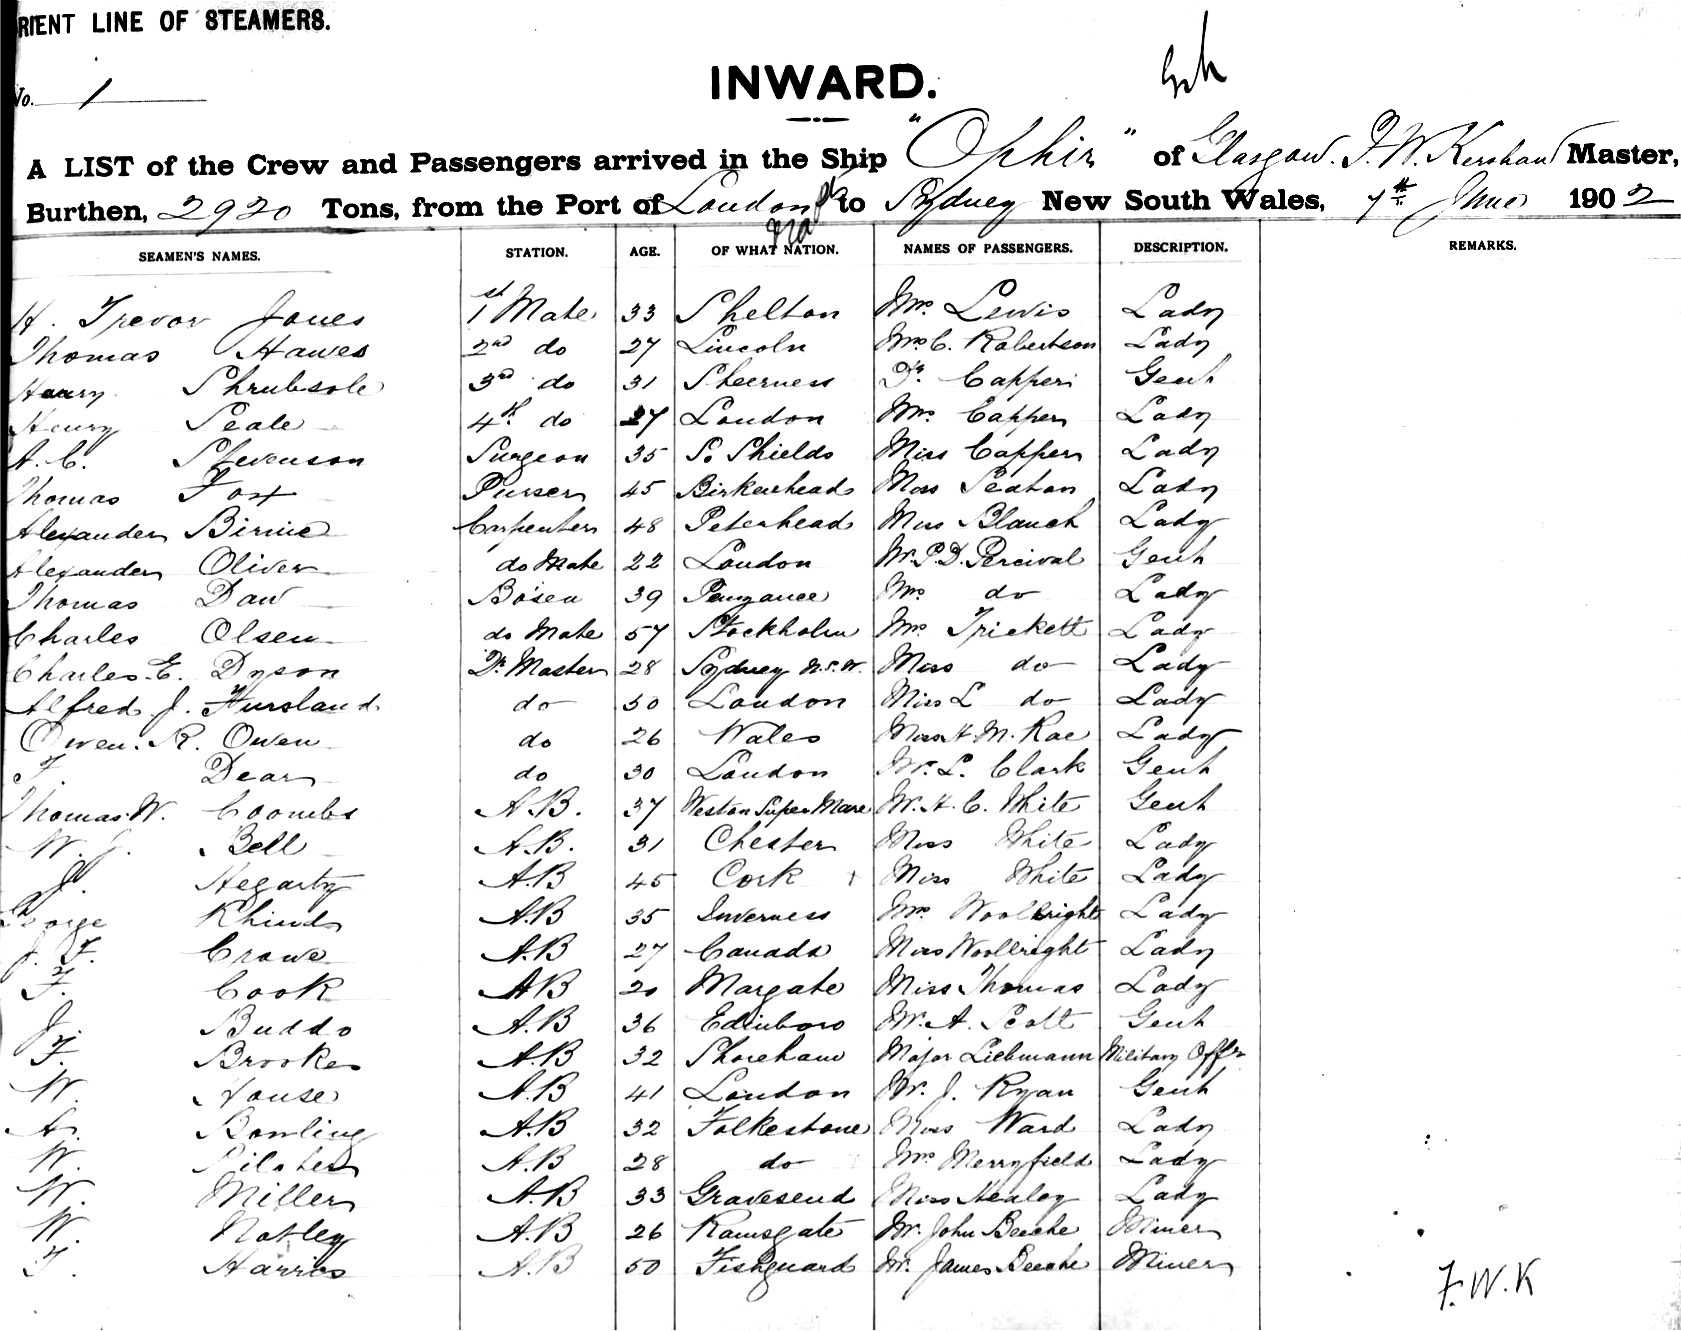 RIENT LINE OF STEAMERS.
No. 1
INWARD.
A LIST of the Crew and Passengers arrived in the Ship "Ophir" of Glasgow. F. W. Kershaw Master,
Burthen, 2920 Tons, from the Port of London to Sydney New South Wales, 7th June 1902
SEAMEN'S NAMES. STATION. AGE. OF WHAT NATION. NAMES OF PASSENGERS. DESCRIPTION. REMARKS.
H. Trevor Jones 1st Mate 33 Shelton Mrs. Lewis Lady
Thomas Hawes 2nd do 27 Lincoln Mrs C. Robertson Lady
Henry Shrubsole 3rd do 31 Sheerness Dr. Capper Gent
Henry Seale 4th do 27 London Mrs Capper Lady
A. C. Stevenson Surgeon 35 So Shields Miss Capper Lady
Thomas Fox Purser 45 Birkenhead Miss Seaton Lady
Alexander Birnie Carpenter 48 Peterhead Miss Blanch Lady
Alexander Oliver do Mate 22 London Mr. P. D. Percival Gent
Thomas Daw Bosen 39 Penzance Mrs do Lady
Charles Olsen do Mate 57 Stockholm Mrs Trickett Lady
Charles E. Dyson Qr. Master 28 Sydney N.S.W. Miss do Lady
Alfred J. Hursland do 50 London Miss L do Lady
Owen. R. Owen do 26 Wales Miss H. M. Rae Lady
F. Dear do 30 London Mr. L. Clark Gent
Thomas W. Coombs A.B. 37 Weston Super Mare Mr. H. C. White Gent
W. J. Bell A.B. 31 Chester Miss White Lady
J. Hegarty A.B 45 Cork Miss White Lady
George Rhind A.B 35 Inverness Mrs Woollright Lady
J. F. Crowe A.B 27 Canada Miss Woollright Lady
F. Cook AB 20 Margate Miss Thomas Lady
J. Buddo A.B 36 Edinboro Mr. A. Scott Gent
F. Brookes A.B 32 Shoreham Major Liebmann Military Offr
W. House A.B 41 London Mr. J. Ryan Gent
A. Bowling A.B 32 Folkestone Miss Ward Lady
W. Pilcher A.B 28 do Mrs Merryfield Lady
W. Miller A.B 33 Gravesend Miss Healey Lady
W. Notley A.B 26 Ramsgate Mr. John Beeche Miner
F. Harries A.B 50 Fishguard Mr. James Beeche Miner
F. W. K